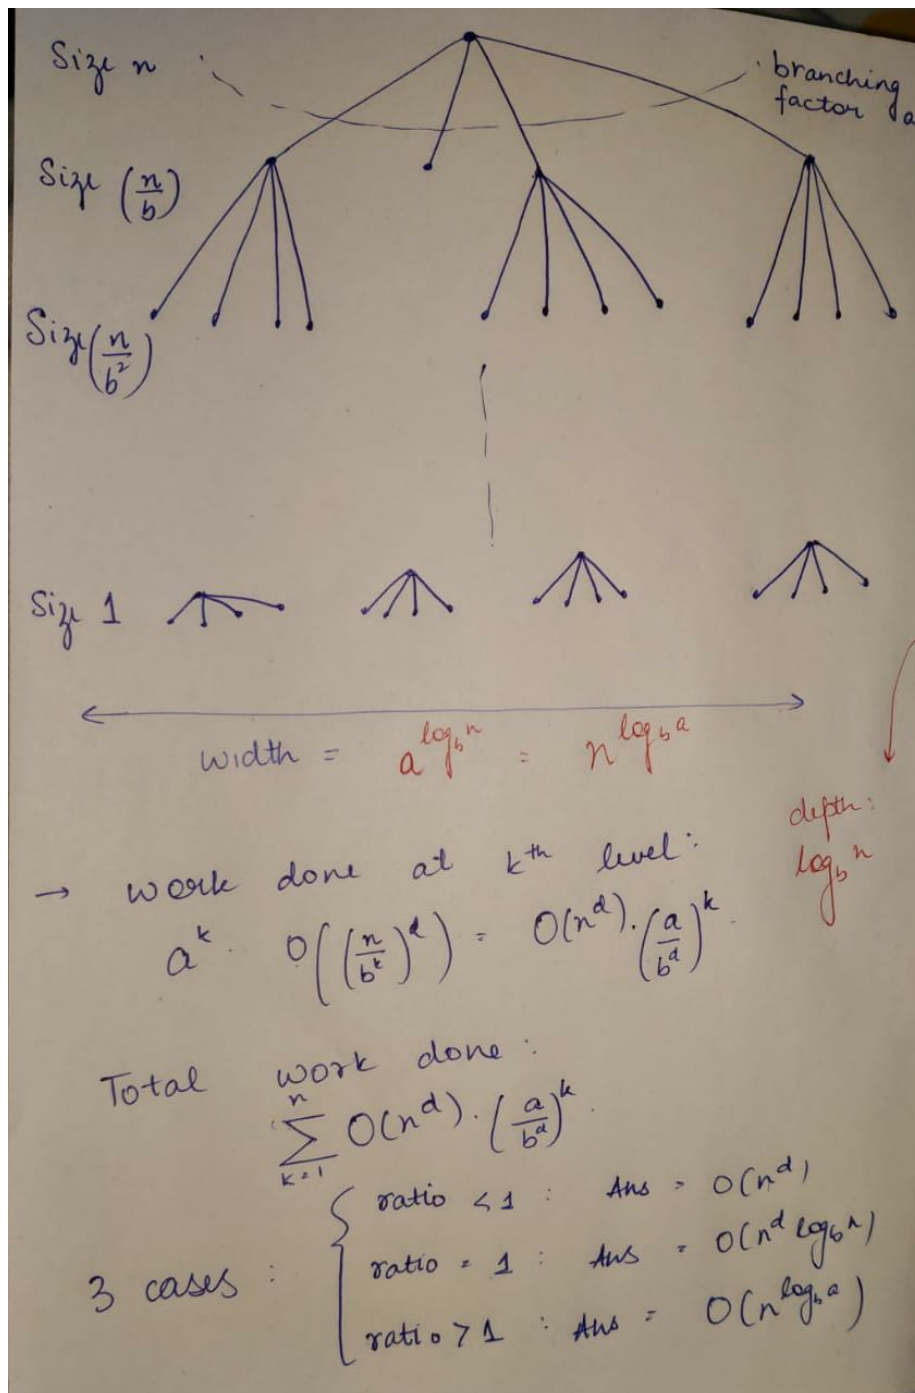 Size n
branching
factor a
Size (n/b)
Size (n/b²)
Size 1
width = a^{log_b n} = n^{log_b a}
depth:
log_b n
→ work done at kth level:
a^k · O((n/b^k)^d) = O(n^d) · (a/b^d)^k.
Total work done:
∑_{k=1}^{n} O(n^d) · (a/b^d)^k.
3 cases : { ratio < 1 : Ans = O(n^d)
ratio = 1 : Ans = O(n^d log_b n)
ratio > 1 : Ans = O(n^{log_b a})